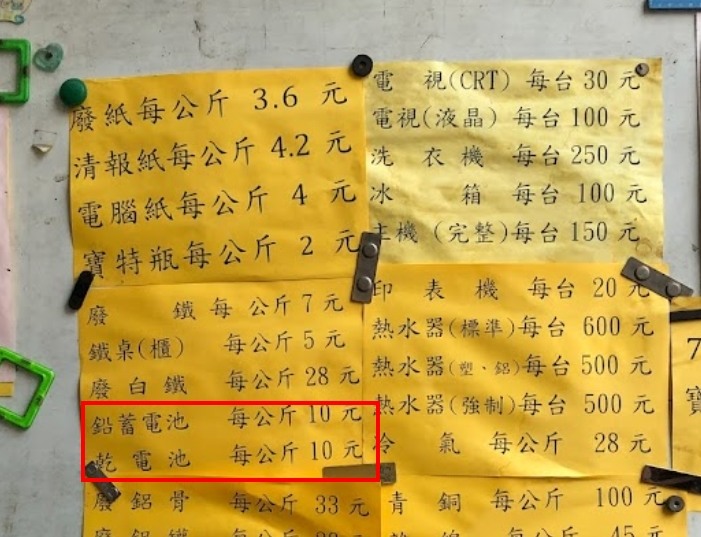 廢紙每公斤 3.6 元
清報紙每公斤 4.2 元
電腦紙每公斤 4 元
寶特瓶每公斤 2 元
廢鐵每公斤 7 元
鐵桌(櫃) 每公斤 5 元
廢白鐵 每公斤 28 元
鉛蓄電池 每公斤 10 元
乾電池 每公斤 10 元
廢鋁骨 每公斤 33 元
電視(CRT) 每台 30 元
電視(液晶) 每台 100 元
洗衣機 每台 250 元
冰箱 每台 100 元
主機(完整)每台 150 元
印表機 每台 20 元
熱水器(標準)每台 600 元
熱水器(塑、鋁)每台 500 元
熱水器(強制)每台 500 元
冷氣 每公斤 28 元
青銅 每公斤 100 元
45 元
7
寶